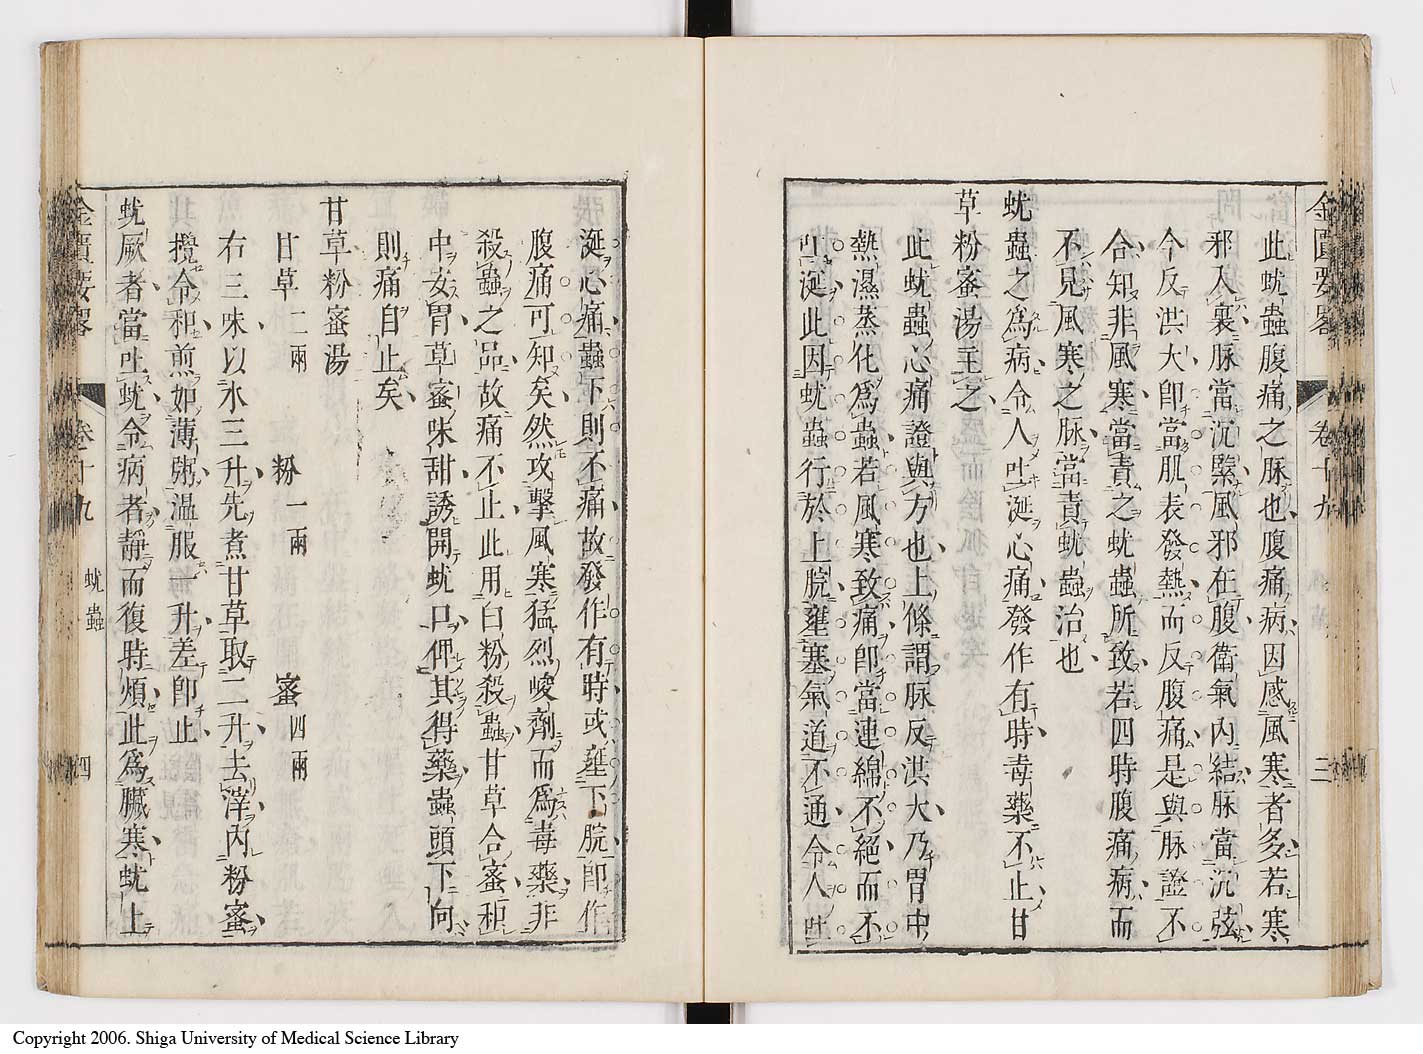 金匱要畧 卷十九 三
此蚘蟲腹痛之脉也腹痛病因感風寒者多若寒
邪入裏脉當沉緊風邪在腹衛氣內結脉當沉弦
今反洪大卽當肌表發熱而反腹痛是與脉證不
合知非風寒當責之蚘蟲所致若四時腹痛病而
不見風寒之脉當責蚘蟲治也
蚘蟲之爲病令人吐涎心痛發作有時毒藥不止甘
草粉蜜湯主之
此蚘蟲心痛證與方也上條謂脉反洪大乃胃中
熱濕蒸化爲蟲若風寒致痛卽當連綿不絕而不
吐涎此因蚘蟲行於上脘壅塞氣道不通令人吐
涎心痛蟲下則不痛故發作有時或壅下脘卽作
腹痛可知矣然攻擊風寒猛烈峻劑而爲毒藥非
殺蟲之品故痛不止此用白粉殺蟲甘草合蜜和
中安胃草蜜味甜誘開蚘口俾其得藥蟲頭下向
則痛自止矣
甘草粉蜜湯
甘草 二兩 粉 一兩 蜜 四兩
右三味以水三升先煮甘草取二升去滓內粉蜜
攪令和煎如薄粥溫服一升差卽止
蚘厥者當吐蚘令病者靜而復時煩此爲臟寒蚘上
金匱要畧 卷十九 蚘蟲 四
Copyright 2006. Shiga University of Medical Science Library